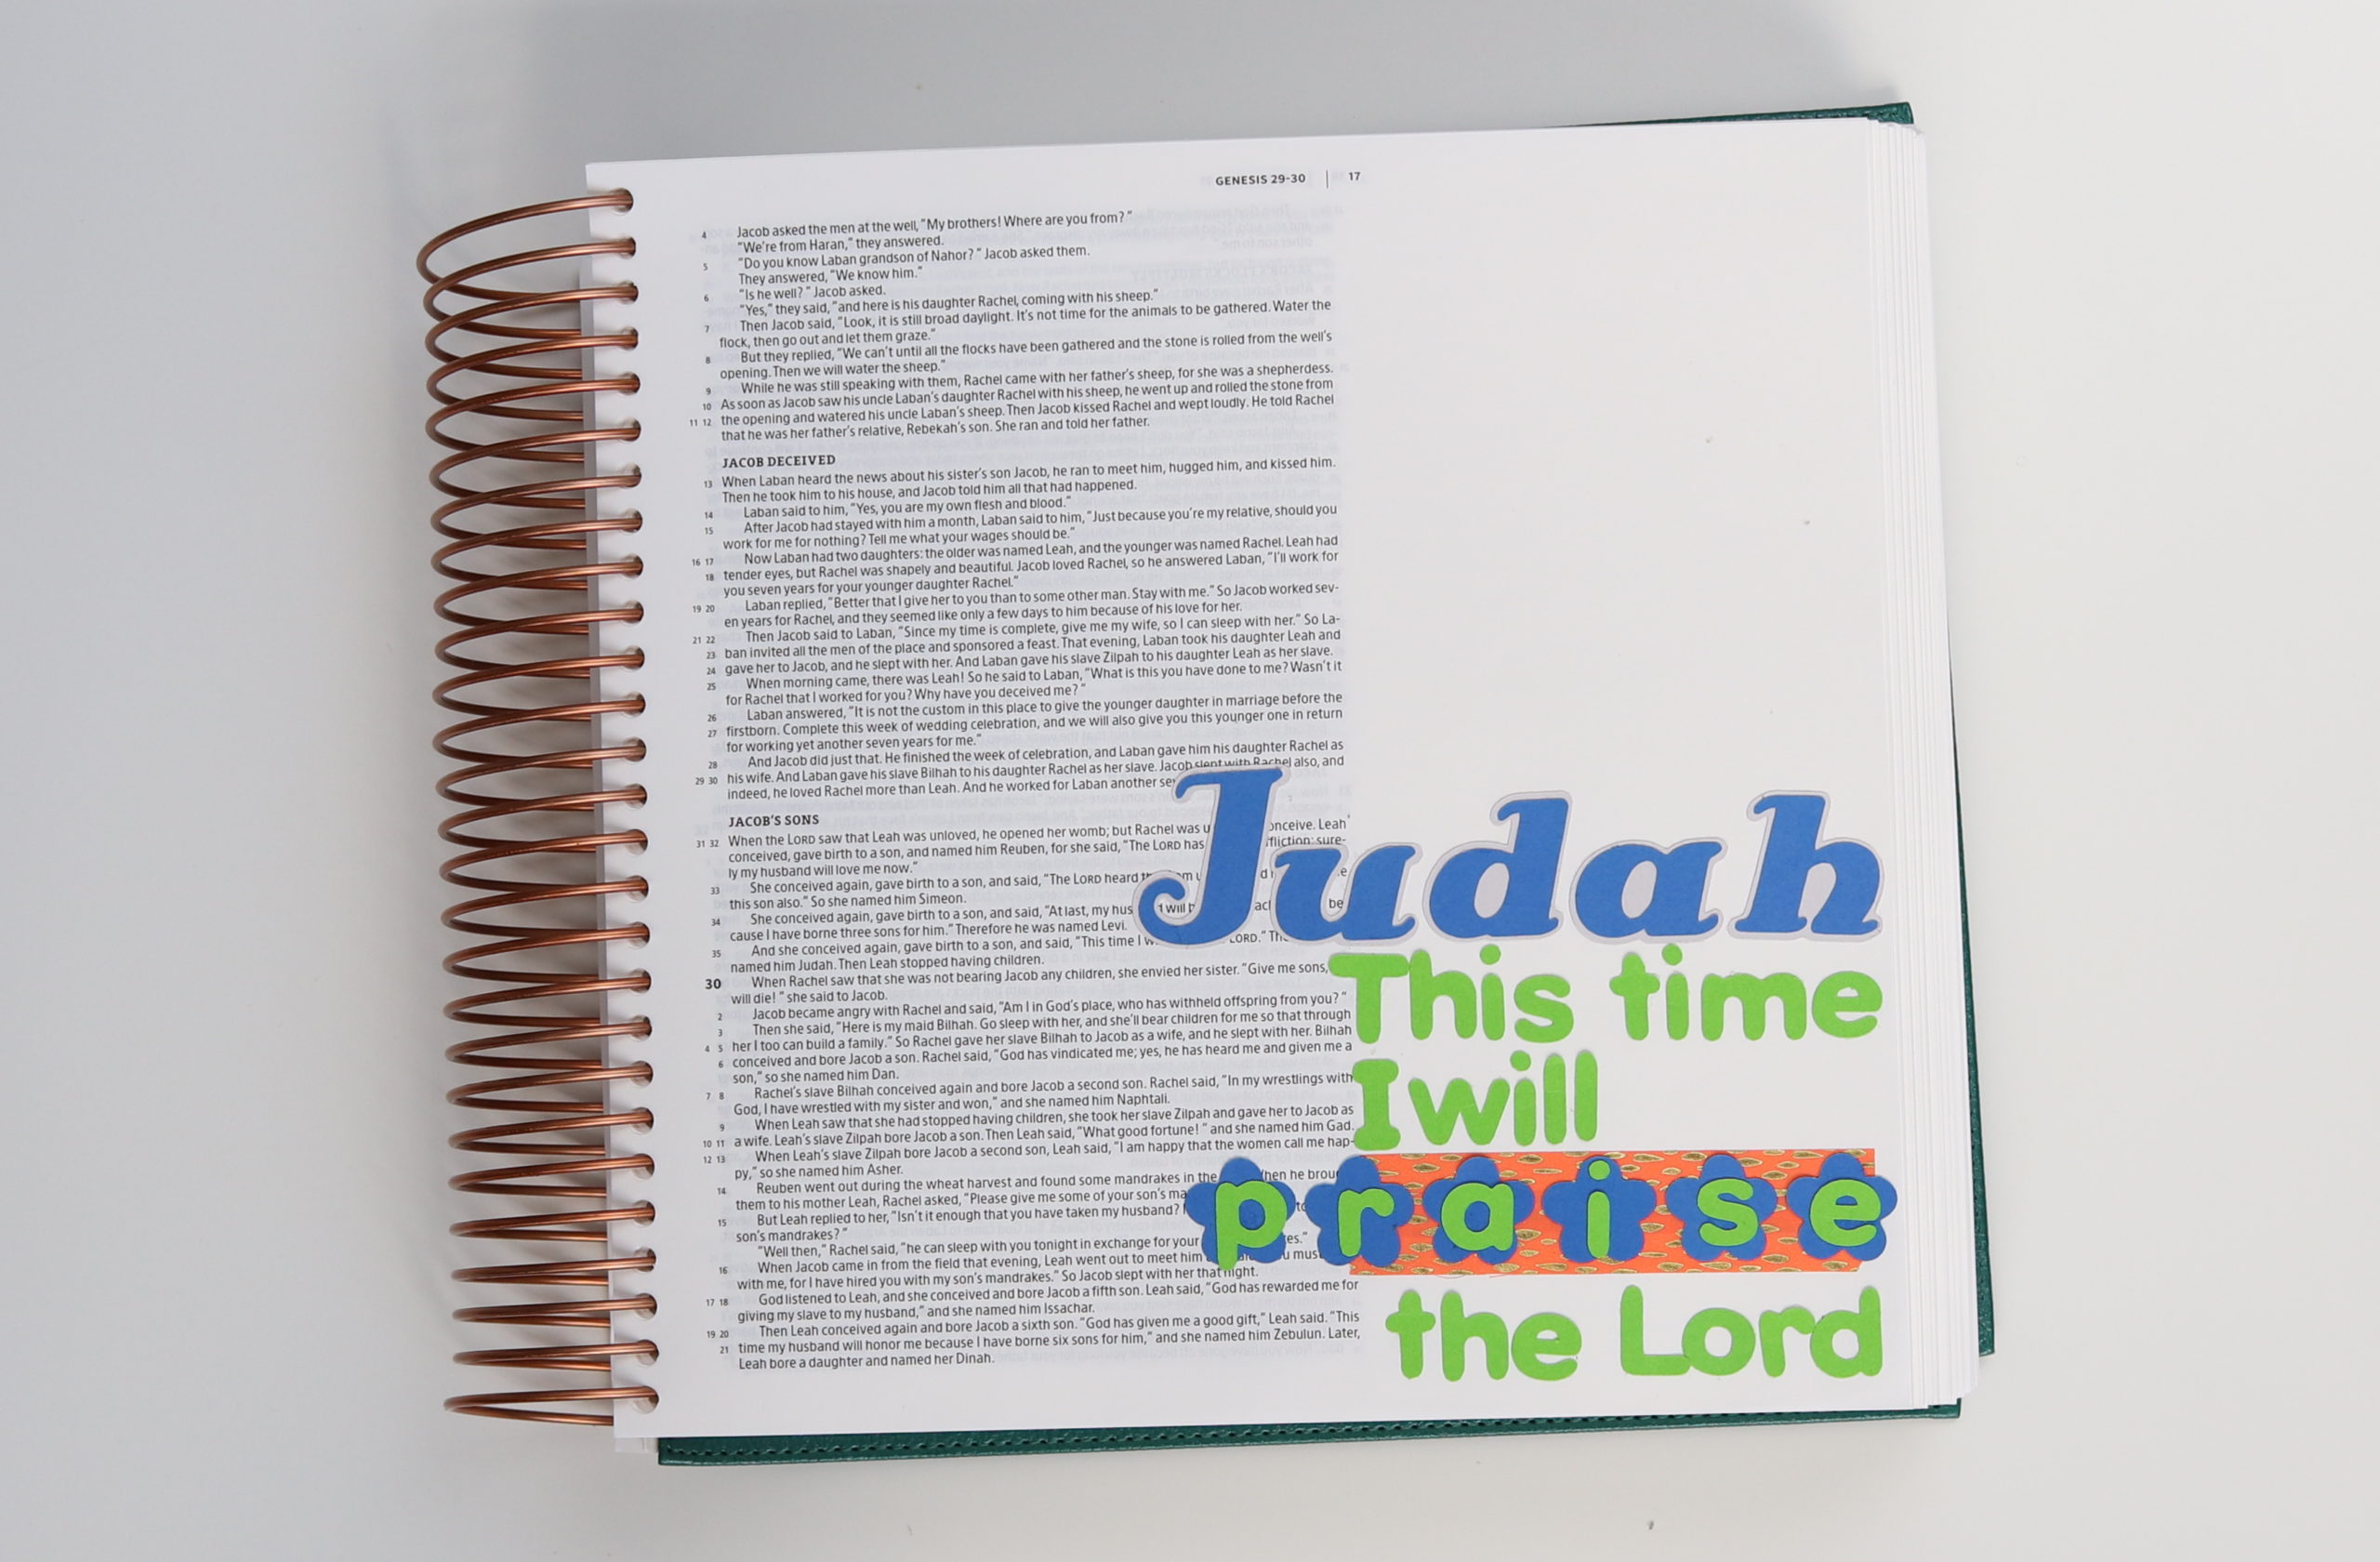 GENESIS 29-30 | 17
4 Jacob asked the men at the well, "My brothers! Where are you from?"
"We're from Haran," they answered.
5 "Do you know Laban grandson of Nahor?" Jacob asked them.
They answered, "We know him."
6 "Is he well?" Jacob asked.
"Yes," they said, "and here is his daughter Rachel, coming with his sheep."
7 Then Jacob said, "Look, it is still broad daylight. It's not time for the animals to be gathered. Water the
flock, then go out and let them graze."
8 But they replied, "We can't until all the flocks have been gathered and the stone is rolled from the well's
opening. Then we will water the sheep."
9 While he was still speaking with them, Rachel came with her father's sheep, for she was a shepherdess.
10 As soon as Jacob saw his uncle Laban's daughter Rachel with his sheep, he went up and rolled the stone from
11 12 the opening and watered his uncle Laban's sheep. Then Jacob kissed Rachel and wept loudly. He told Rachel
that he was her father's relative, Rebekah's son. She ran and told her father.
JACOB DECEIVED
13 When Laban heard the news about his sister's son Jacob, he ran to meet him, hugged him, and kissed him.
Then he took him to his house, and Jacob told him all that had happened.
14 Laban said to him, "Yes, you are my own flesh and blood."
15 After Jacob had stayed with him a month, Laban said to him, "Just because you're my relative, should you
work for me for nothing? Tell me what your wages should be."
16 17 Now Laban had two daughters: the older was named Leah, and the younger was named Rachel. Leah had
18 tender eyes, but Rachel was shapely and beautiful. Jacob loved Rachel, so he answered Laban, "I'll work for
you seven years for your younger daughter Rachel."
19 20 Laban replied, "Better that I give her to you than to some other man. Stay with me." So Jacob worked sev-
en years for Rachel, and they seemed like only a few days to him because of his love for her.
21 22 Then Jacob said to Laban, "Since my time is complete, give me my wife, so I can sleep with her." So La-
23 ban invited all the men of the place and sponsored a feast. That evening, Laban took his daughter Leah and
24 gave her to Jacob, and he slept with her. And Laban gave his slave Zilpah to his daughter Leah as her slave.
25 When morning came, there was Leah! So he said to Laban, "What is this you have done to me? Wasn't it
for Rachel that I worked for you? Why have you deceived me?"
26 Laban answered, "It is not the custom in this place to give the younger daughter in marriage before the
27 firstborn. Complete this week of wedding celebration, and we will also give you this younger one in return
for working yet another seven years for me."
28 And Jacob did just that. He finished the week of celebration, and Laban gave him his daughter Rachel as
29 30 his wife. And Laban gave his slave Bilhah to his daughter Rachel as her slave. Jacob slept with Rachel also, and
indeed, he loved Rachel more than Leah. And he worked for Laban another
JACOB'S SONS
31 32 When the LORD saw that Leah was unloved, he opened her womb; but Rachel was conceive. Leah
conceived, gave birth to a son, and named him Reuben, for she said, "The LORD has sure-
ly my husband will love me now."
33 She conceived again, gave birth to a son, and said, "The LORD heard
this son also." So she named him Simeon.
34 She conceived again, gave birth to a son, and said, "At last, my will be-
cause I have borne three sons for him." Therefore he was named Levi.
35 And she conceived again, gave birth to a son, and said, "This time I LORD."
named him Judah. Then Leah stopped having children.
30 When Rachel saw that she was not bearing Jacob any children, she envied her sister. "Give me sons,
will die!" she said to Jacob.
2 Jacob became angry with Rachel and said, "Am I in God's place, who has withheld offspring from you?"
3 Then she said, "Here is my maid Bilhah. Go sleep with her, and she'll bear children for me so that through
4 5 her I too can build a family." So Rachel gave her slave Bilhah to Jacob as a wife, and he slept with her. Bilhah
6 conceived and bore Jacob a son. Rachel said, "God has vindicated me; yes, he has heard me and given me a
son," so she named him Dan.
7 8 Rachel's slave Bilhah conceived again and bore Jacob a second son. Rachel said, "In my wrestlings with
God, I have wrestled with my sister and won," and she named him Naphtali.
9 When Leah saw that she had stopped having children, she took her slave Zilpah and gave her to Jacob as
10 11 a wife. Leah's slave Zilpah bore Jacob a son. Then Leah said, "What good fortune!" and she named him Gad.
12 13 When Leah's slave Zilpah bore Jacob a second son, Leah said, "I am happy that the women call me hap-
py," so she named him Asher.
14 Reuben went out during the wheat harvest and found some mandrakes in the he
them to his mother Leah, Rachel asked, "Please give me some of your son's
15 But Leah replied to her, "Isn't it enough that you have taken my husband?
son's mandrakes?"
"Well then," Rachel said, "he can sleep with you tonight in exchange for your
16 When Jacob came in from the field that evening, Leah went out to meet him must
with me, for I have hired you with my son's mandrakes." So Jacob slept with her that night.
17 18 God listened to Leah, and she conceived and bore Jacob a fifth son. Leah said, "God has rewarded me for
giving my slave to my husband," and she named him Issachar.
19 20 Then Leah conceived again and bore Jacob a sixth son. "God has given me a good gift," Leah said. "This
21 time my husband will honor me because I have borne six sons for him," and she named him Zebulun. Later,
Leah bore a daughter and named her Dinah.
Judah
This time
I will
praise
the Lord